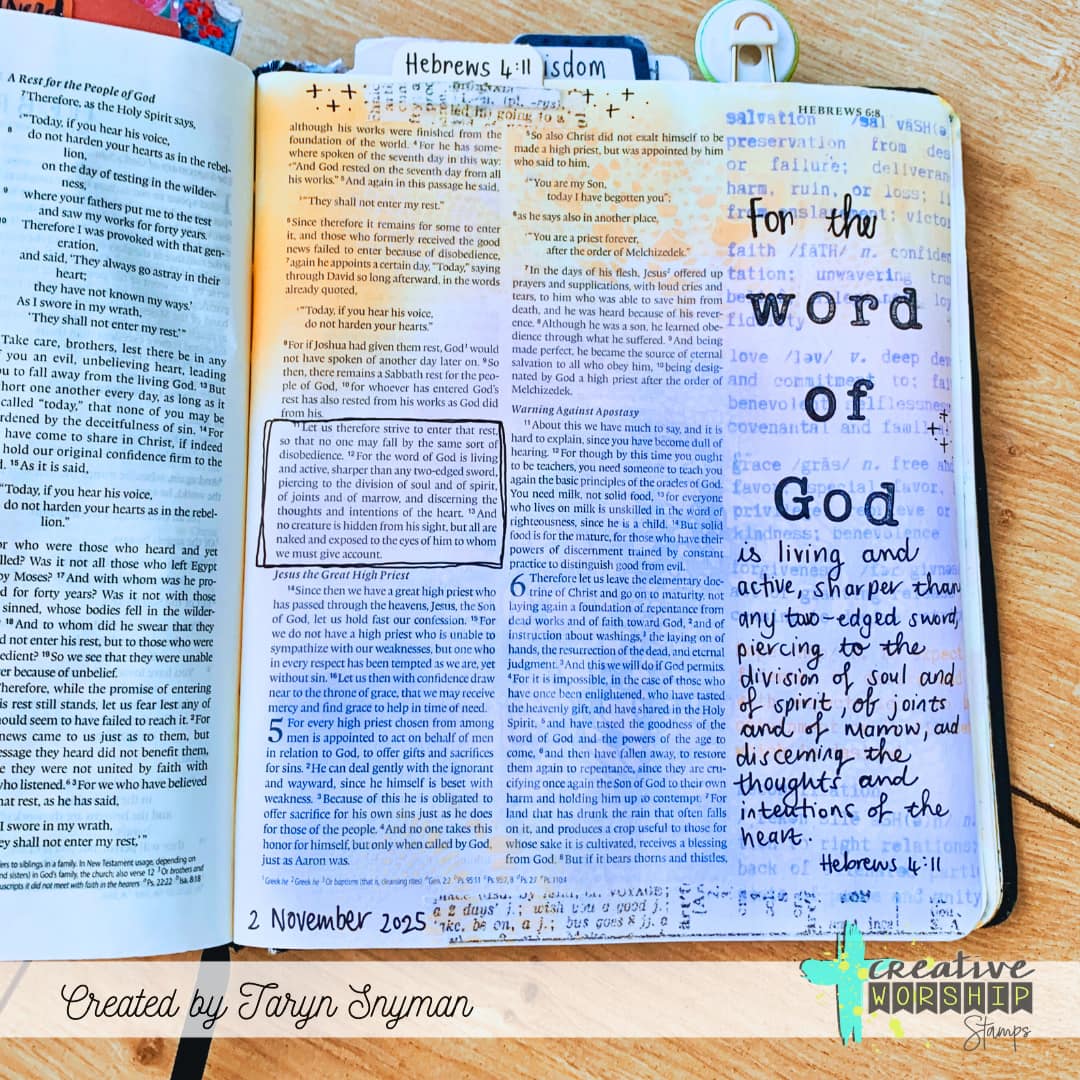 Hebrews 4:11
isdom
HEBREWS 6:8
A Rest for the People of God
⁷Therefore, as the Holy Spirit says,
"Today, if you hear his voice,
8 do not harden your hearts as in the rebel-
lion,
on the day of testing in the wilder-
ness,
9 where your fathers put me to the test
and saw my works for forty years.
10 Therefore I was provoked with that gen-
eration,
and said, 'They always go astray in their
heart;
they have not known my ways.'
As I swore in my wrath,
'They shall not enter my rest.'"
Take care, brothers, lest there be in any
you an evil, unbelieving heart, leading
to fall away from the living God. ¹³But
hort one another every day, as long as it
called "today," that none of you may be
rdened by the deceitfulness of sin. ¹⁴For
have come to share in Christ, if indeed
hold our original confidence firm to the
¹⁵As it is said,
"Today, if you hear his voice,
do not harden your hearts as in the rebel-
lion."
who were those who heard and yet
lled? Was it not all those who left Egypt
by Moses? ¹⁷And with whom was he pro-
d for forty years? Was it not with those
sinned, whose bodies fell in the wilder-
¹⁸And to whom did he swear that they
d not enter his rest, but to those who were
edient? ¹⁹So we see that they were unable
er because of unbelief.
herefore, while the promise of entering
is rest still stands, let us fear lest any of
ould seem to have failed to reach it. ²For
news came to us just as to them, but
essage they heard did not benefit them,
e they were not united by faith with
who listened. ³For we who have believed
hat rest, as he has said,
I swore in my wrath,
ey shall not enter my rest,'"
although his works were finished from the
foundation of the world. ⁴For he has some-
where spoken of the seventh day in this way:
"And God rested on the seventh day from all
his works." ⁵And again in this passage he said,
"They shall not enter my rest."
⁶Since therefore it remains for some to enter
it, and those who formerly received the good
news failed to enter because of disobedience,
⁷again he appoints a certain day, "Today," saying
through David so long afterward, in the words
already quoted,
"Today, if you hear his voice,
do not harden your hearts."
⁸For if Joshua had given them rest, God¹ would
not have spoken of another day later on. ⁹So
then, there remains a Sabbath rest for the peo-
ple of God, ¹⁰for whoever has entered God's
rest has also rested from his works as God did
from his.
¹¹Let us therefore strive to enter that rest,
so that no one may fall by the same sort of
disobedience. ¹²For the word of God is living
and active, sharper than any two-edged sword,
piercing to the division of soul and of spirit,
of joints and of marrow, and discerning the
thoughts and intentions of the heart. ¹³And
no creature is hidden from his sight, but all are
naked and exposed to the eyes of him to whom
we must give account.
Jesus the Great High Priest
¹⁴Since then we have a great high priest who
has passed through the heavens, Jesus, the Son
of God, let us hold fast our confession. ¹⁵For
we do not have a high priest who is unable to
sympathize with our weaknesses, but one who
in every respect has been tempted as we are, yet
without sin. ¹⁶Let us then with confidence draw
near to the throne of grace, that we may receive
mercy and find grace to help in time of need.
5 For every high priest chosen from among
men is appointed to act on behalf of men
in relation to God, to offer gifts and sacrifices
for sins. ²He can deal gently with the ignorant
and wayward, since he himself is beset with
weakness. ³Because of this he is obligated to
offer sacrifice for his own sins just as he does
for those of the people. ⁴And no one takes this
honor for himself, but only when called by God,
just as Aaron was.
⁵So also Christ did not exalt himself to be
made a high priest, but was appointed by him
who said to him,
"You are my Son,
today I have begotten you";
⁶as he says also in another place,
"You are a priest forever,
after the order of Melchizedek."
⁷In the days of his flesh, Jesus² offered up
prayers and supplications, with loud cries and
tears, to him who was able to save him from
death, and he was heard because of his rever-
ence. ⁸Although he was a son, he learned obe-
dience through what he suffered. ⁹And being
made perfect, he became the source of eternal
salvation to all who obey him, ¹⁰being desig-
nated by God a high priest after the order of
Melchizedek.
Warning Against Apostasy
¹¹About this we have much to say, and it is
hard to explain, since you have become dull of
hearing. ¹²For though by this time you ought
to be teachers, you need someone to teach you
again the basic principles of the oracles of God.
You need milk, not solid food, ¹³for everyone
who lives on milk is unskilled in the word of
righteousness, since he is a child. ¹⁴But solid
food is for the mature, for those who have their
powers of discernment trained by constant
practice to distinguish good from evil.
6 Therefore let us leave the elementary doc-
trine of Christ and go on to maturity, not
laying again a foundation of repentance from
dead works and of faith toward God, ²and of
instruction about washings,³ the laying on of
hands, the resurrection of the dead, and eternal
judgment. ³And this we will do if God permits.
⁴For it is impossible, in the case of those who
have once been enlightened, who have tasted
the heavenly gift, and have shared in the Holy
Spirit, ⁵and have tasted the goodness of the
word of God and the powers of the age to
come, ⁶and then have fallen away, to restore
them again to repentance, since they are cru-
cifying once again the Son of God to their own
harm and holding him up to contempt. ⁷For
land that has drunk the rain that often falls
on it, and produces a crop useful to those for
whose sake it is cultivated, receives a blessing
from God. ⁸But if it bears thorns and thistles,
salvation
preservation from
or failure;
harm, ruin, or loss;
faith /fāTH/ n.
unwavering
love /ləv/ v. deep
and commitment to;
covenantal and
grace /grās/ n. free
kindness; benevolence
For the
word
of
God
is living and
active, sharper than
any two-edged sword,
piercing to the
division of soul and
of spirit, of joints
and of marrow, and
discerning the
thoughts and
intentions of the
heart.
Hebrews 4:11
right
2 November 2025
a 2 days' j.; wish you a good j.;
Created by Taryn Snyman
Creative
WORSHIP
Stamps